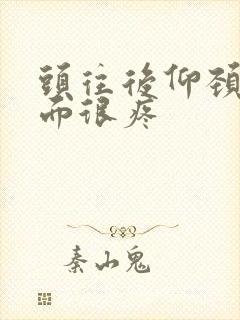 頭往後仰頚
而很疼
秦山鬼